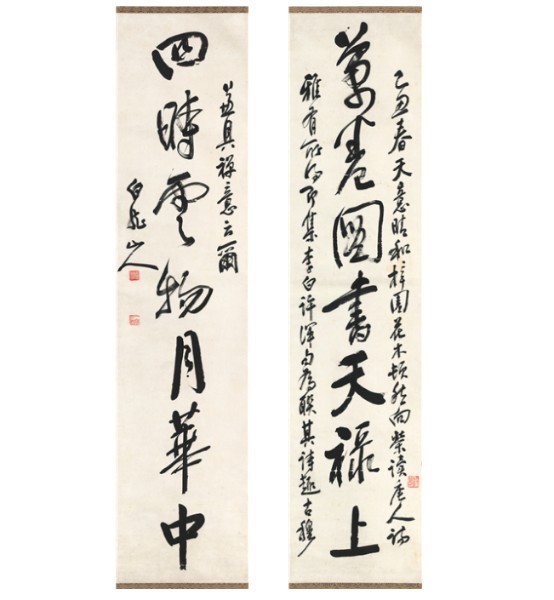 乙丑春天意晴和梓園花木頓然向榮讀唐人詩
萬卷圖書天祿上
雅有所得即集李白許渾句為聯其詩趣古穆
具禪意云爾
四時雲物月華中
白龍山人